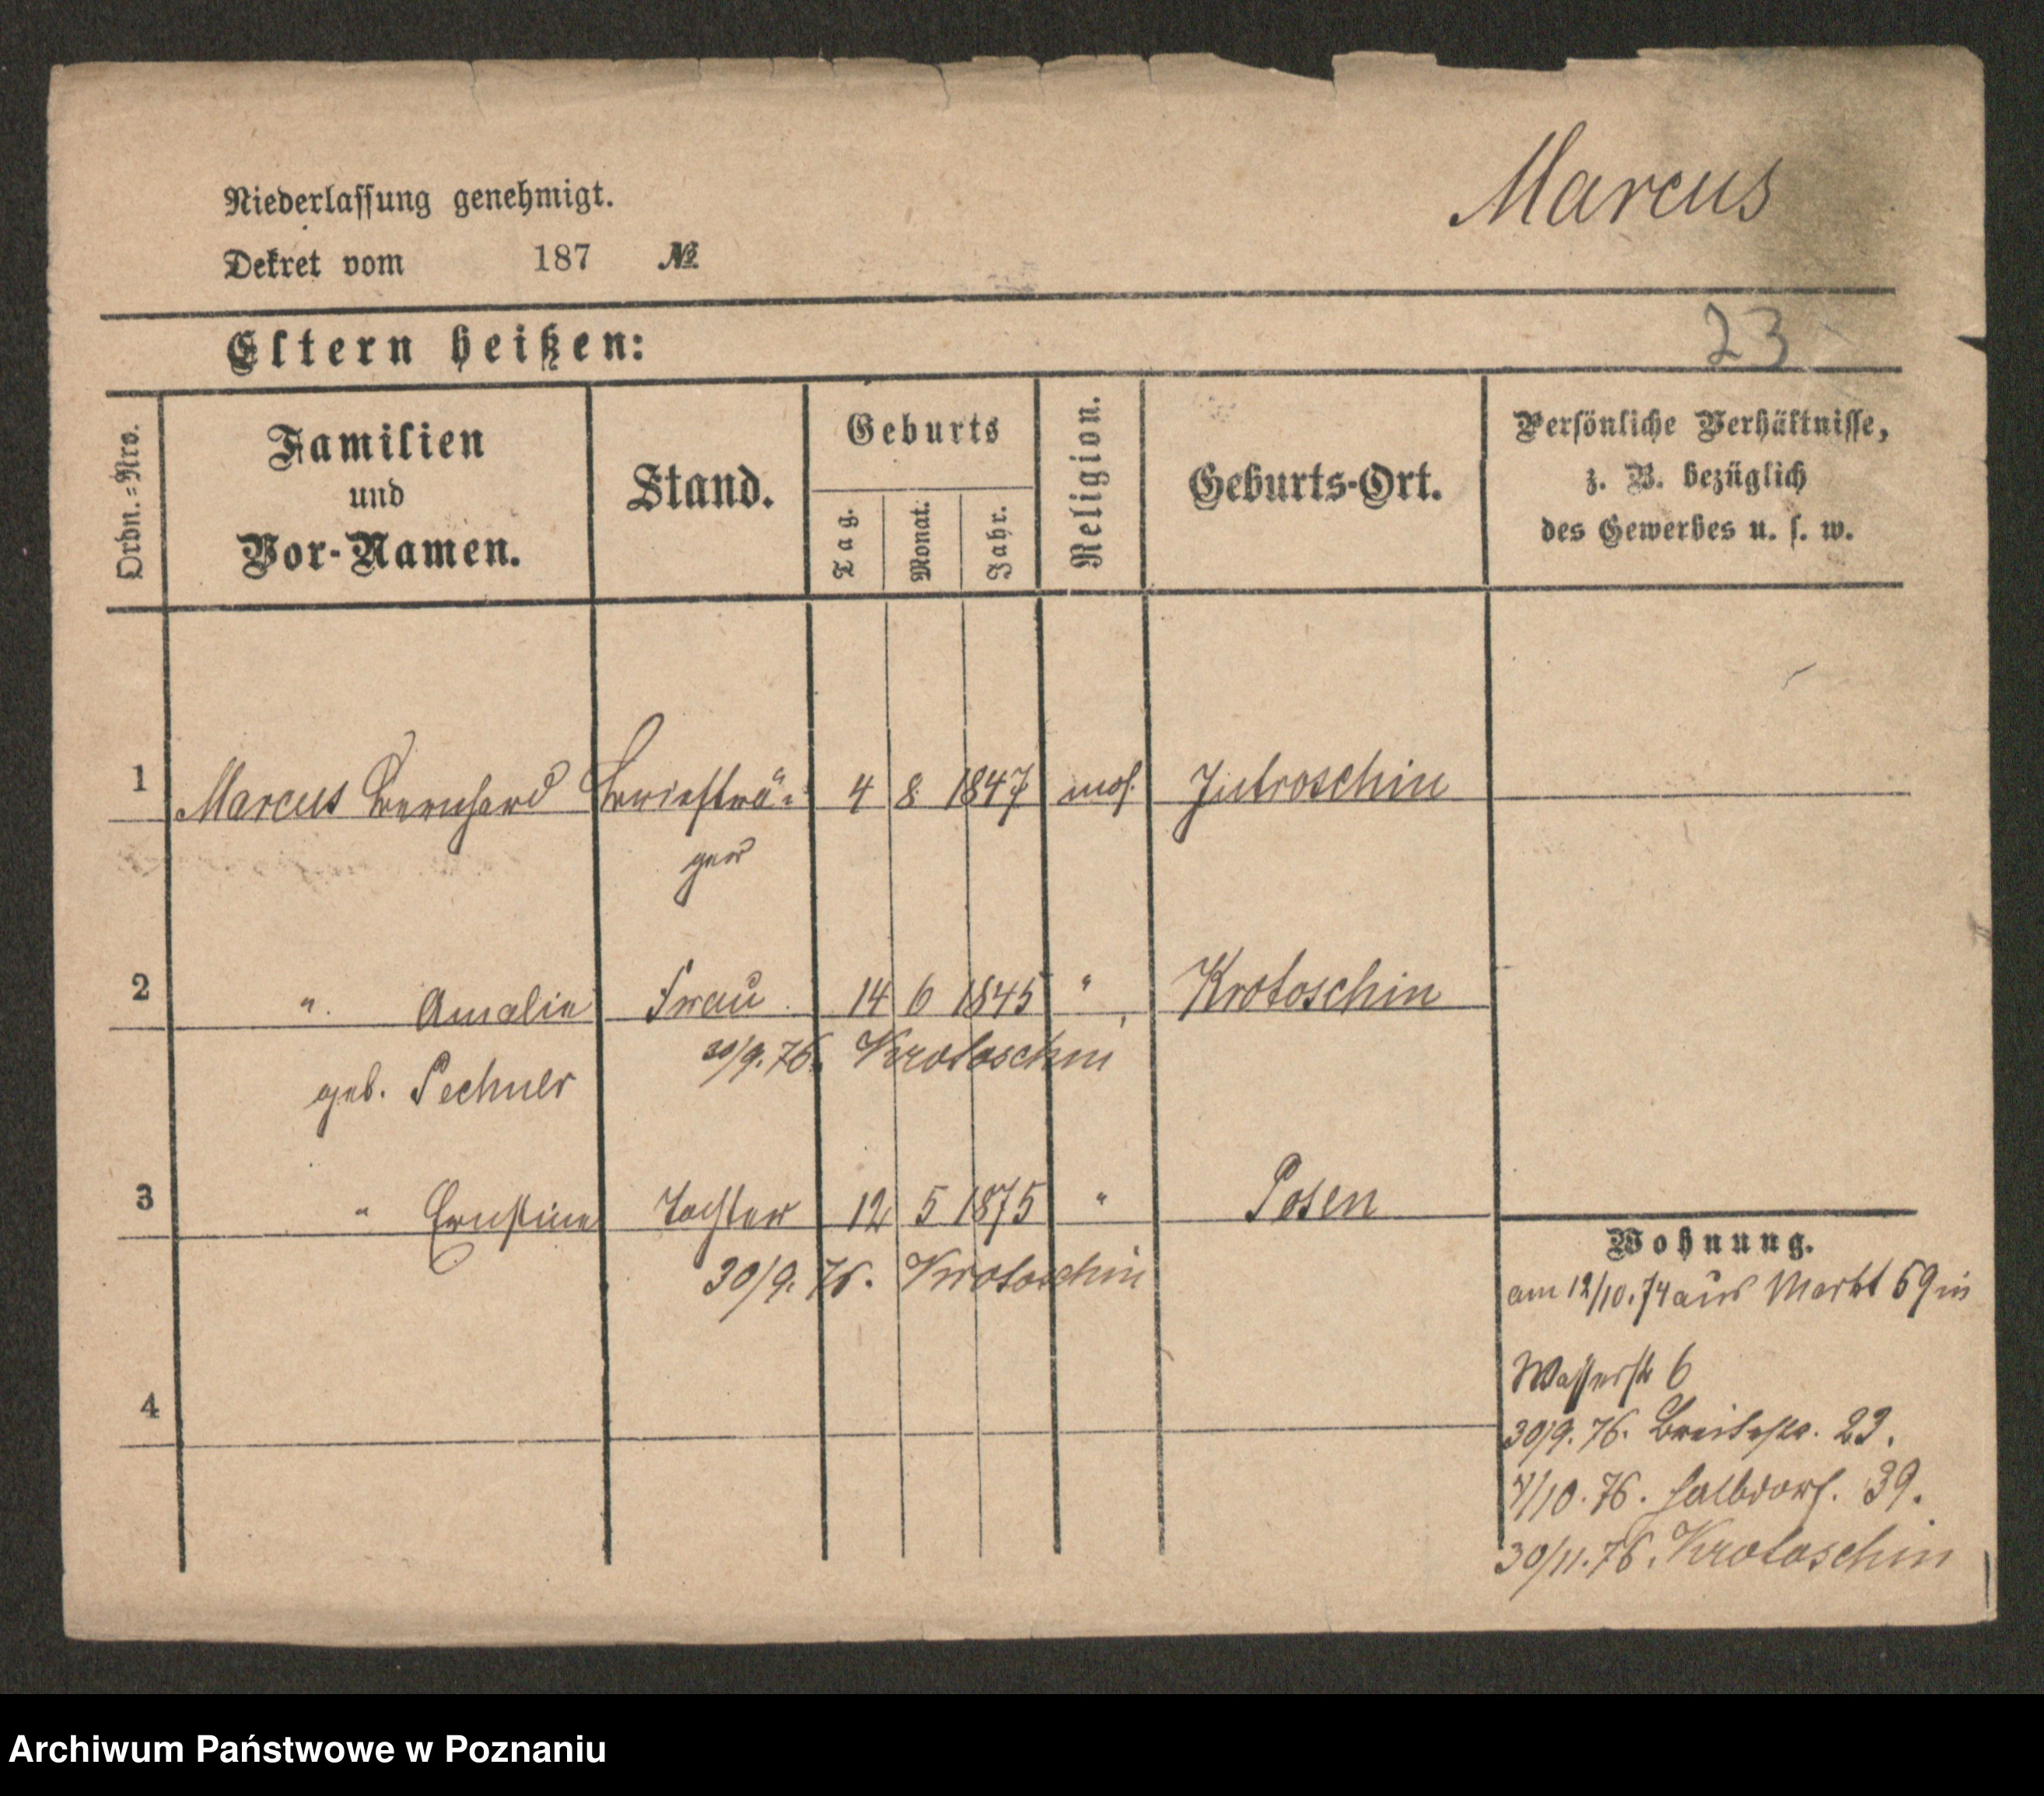 Marcus
Niederlassung genehmigt.
Dekret vom 187 №
23
Eltern heißen:
Ordn.=Nro.
Familien
und
Vor-Namen.
Stand.
Geburts
Tag.
Monat.
Jahr.
Religion.
Geburts-Ort.
Persönliche Verhältnisse,
z. B. bezüglich
des Gewerbes u. s. w.
1 Marcus Bernhard Briefträ- 4 8 1847 mos. Jutroschin
ger
2 ". Amalie Frau 14 6 1845 " Krotoschin
30/9. 76. Krotoschin
geb. Pechner
3 " Ernstine Tochter 12 5 1875 " Posen
30/9. 76. Krotoschin
4
Wohnung.
am 12/10.74 aus Markt 69 in
Wasserstr 6
30/9. 76. Breitestr. 23.
/10. 76. Halbdorf. 39.
30/11. 76. Krotoschin
Archiwum Państwowe w Poznaniu